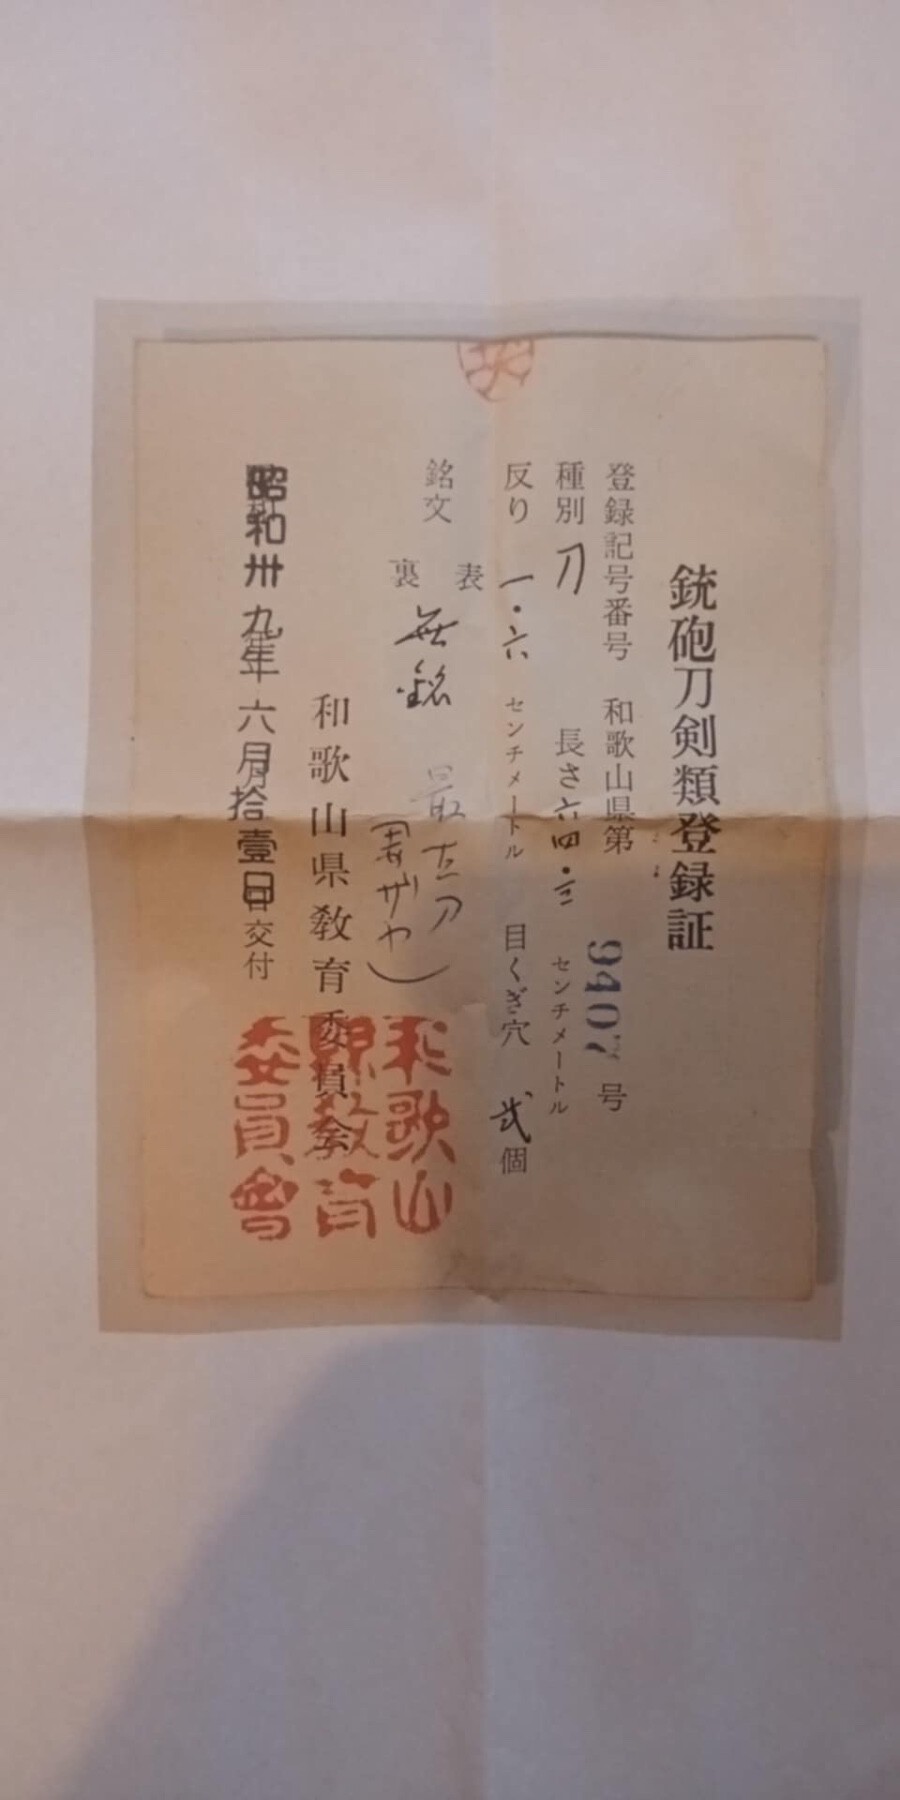 銃砲刀剣類登録証
登録記号番号 和歌山県第 9407 号
種別 刀 長さ 六四・三 センチメートル
反り 一・六 センチメートル 目くぎ穴 弐 個
銘文 表
裏 無銘
昭和卅九年六月拾壹日交付
和歌山県教育委員会
和歌山
県教育
委員會